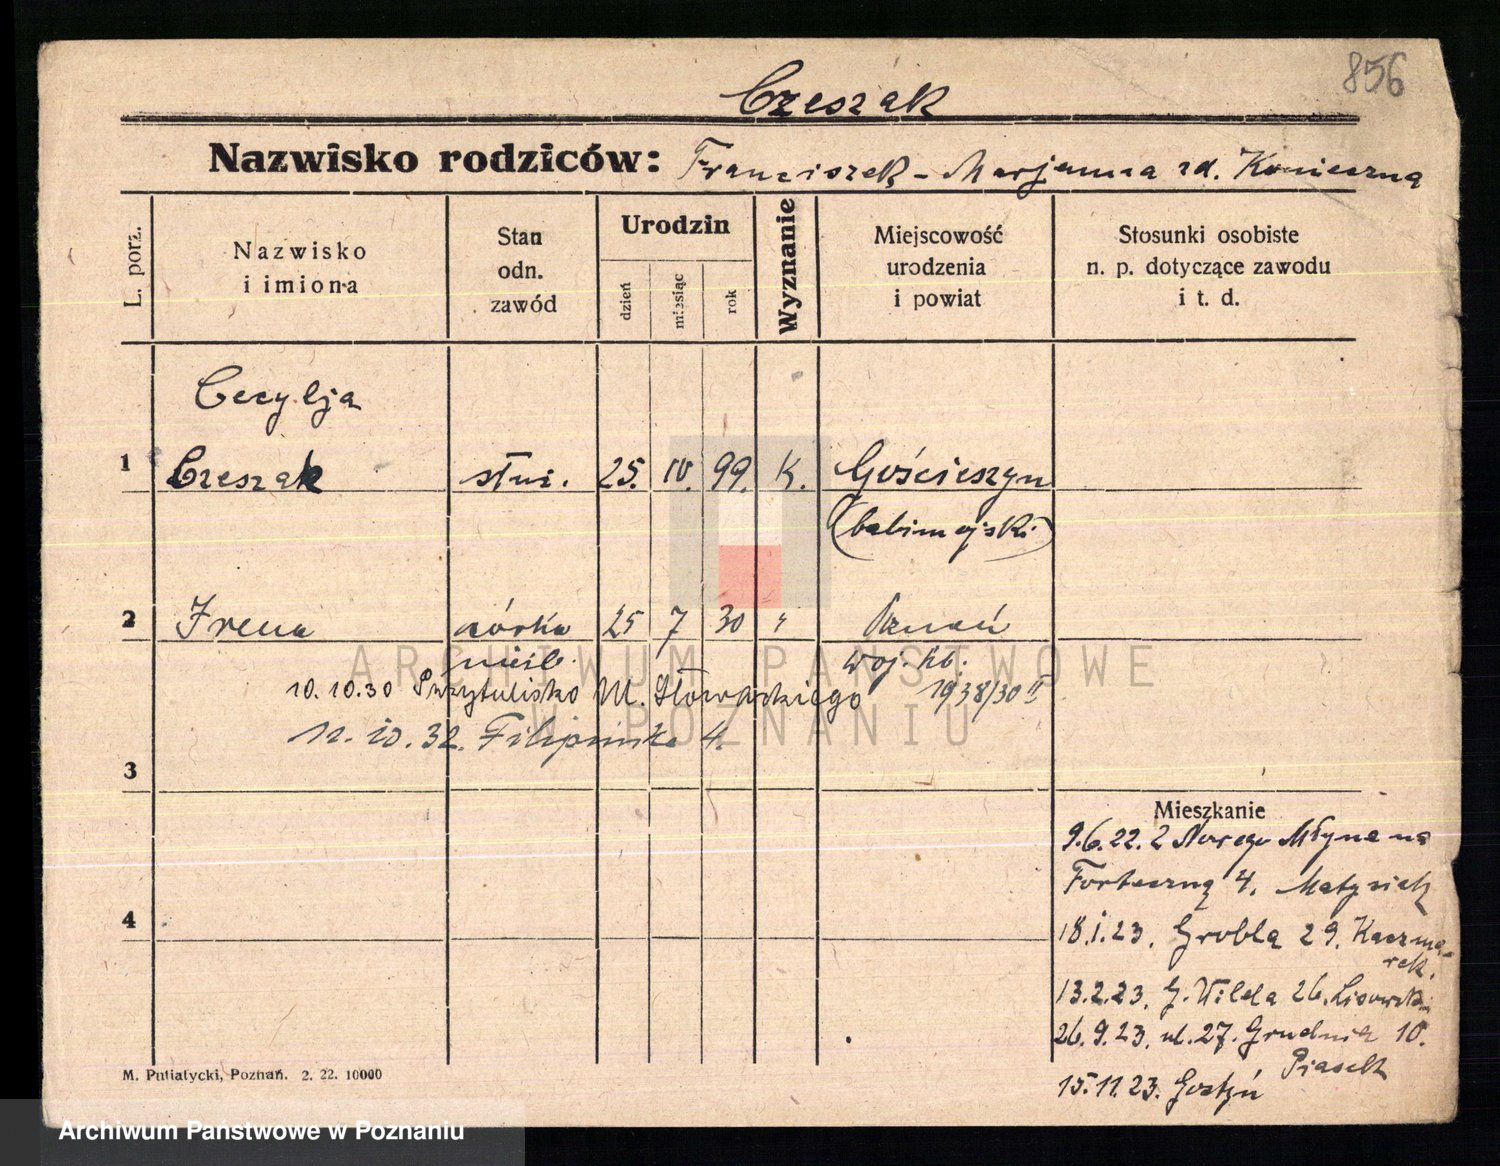 856
Czeszak
Nazwisko rodziców: Franciszek - Marjanna zd. Konieczną
L. porz.
Nazwisko
i imiona
Stan
odn.
zawód
Urodzin
dzień
miesiąc
rok
Wyznanie
Miejscowość
urodzenia
i powiat
Stosunki osobiste
n. p. dotyczące zawodu
i t. d.
Cecylja
1 Czeszak służ. 25. IV. 99. K. Gościeszyn
(babimojski)
2 Irena córka 25 7 30 " Poznań
nieśl. woj.
10.10.30 Przytulisko M. Słowackiego 1938/30 II
11.10.32. Filipińska 4.
3
Mieszkanie
9.6.22. z Nowego Młyna na
Forteczną 4. Matysiak
4
18.I.23. Grobla 29. Kaczma-
rek.
13.2.23. G. Wilda 26. Lisowski
26.9.23. ul. 27. Grudnia 10.
Piasek
15.11.23. Gostyń
M. Putiatycki, Poznań. 2. 22. 10000
ARCHIWUM PAŃSTWOWE
W POZNANIU
Archiwum Państwowe w Poznaniu